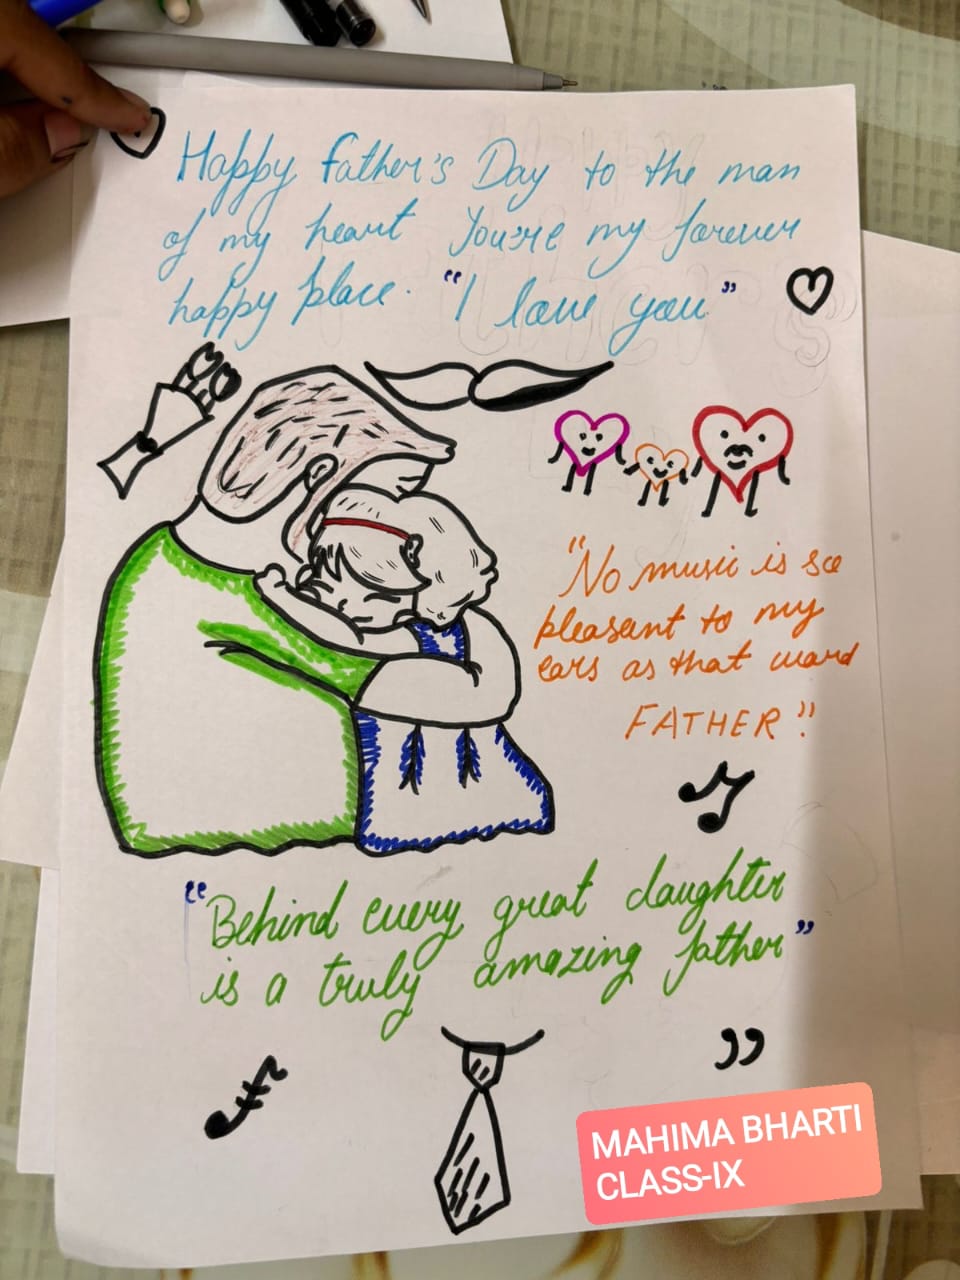 Happy Father's Day to the man
of my heart You're my forever
happy place. "I love you"
"No music is so
pleasant to my
ears as that word
FATHER"
"Behind every great daughter
is a truly amazing father"
MAHIMA BHARTI
CLASS-IX